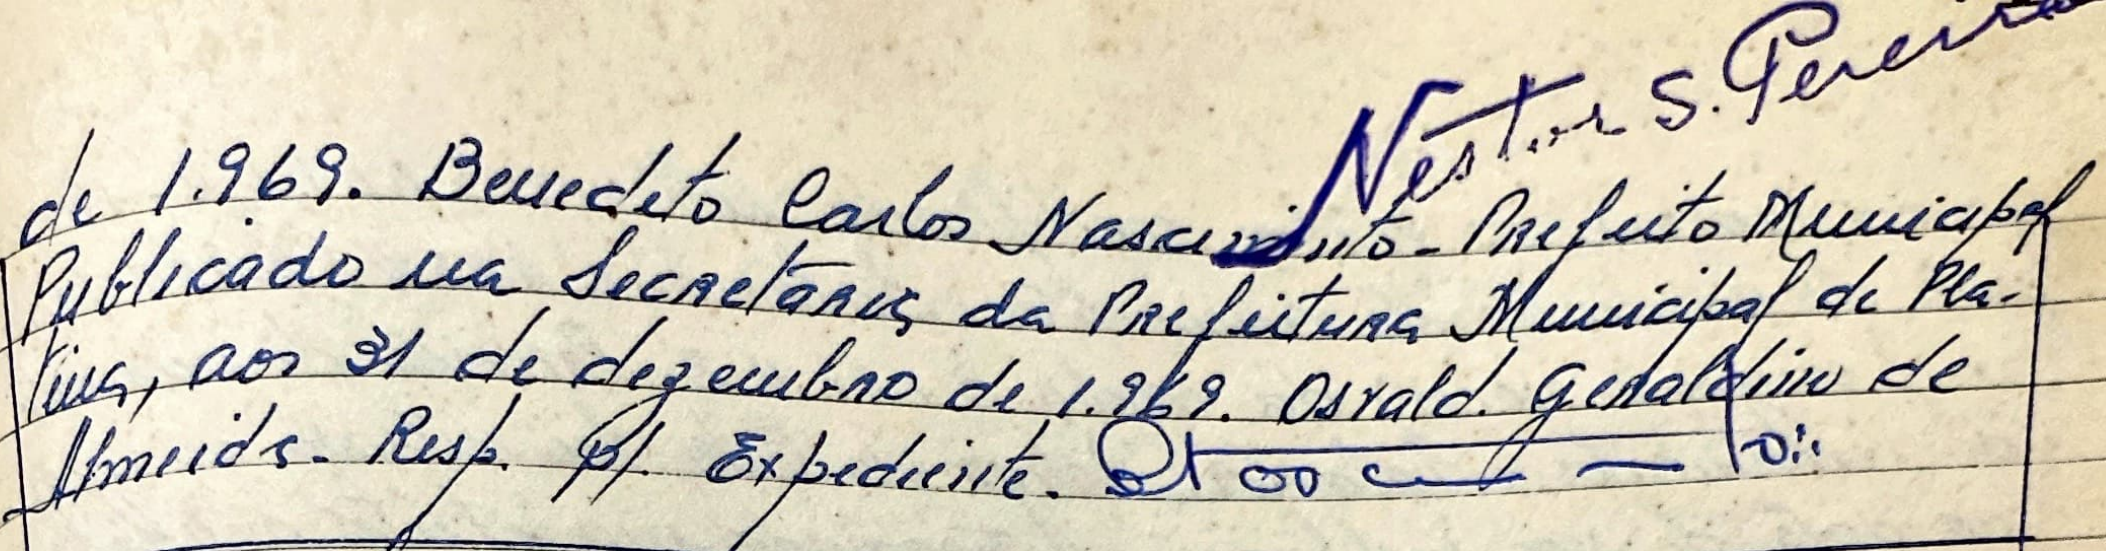 Nestor S. Pereira
de 1.969. Benedito Carlos Nascimento - Prefeito Municipal
Publicado na Secretaria da Prefeitura Municipal de Pla-
tina, aos 31 de dezembro de 1.969. Osvald. Geraldino de
Almeida - Resp. p/. Expediente.